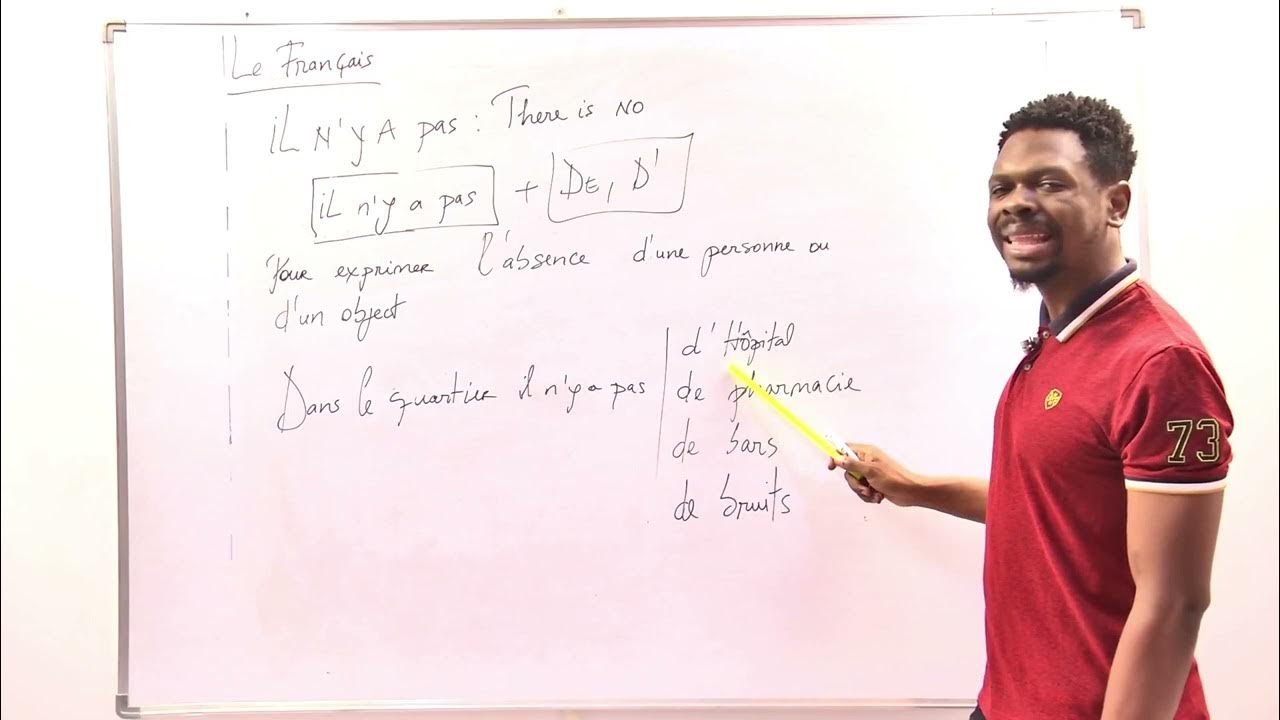 Le Français
iL N'y A pas : There is NO
iL n'y a pas + DE, D'
Pour exprimer l'absence d'une personne ou
d'un object
Dans le quartier il n'y a pas
d'Hôpital
de pharmacie
de bars
de bruits
73